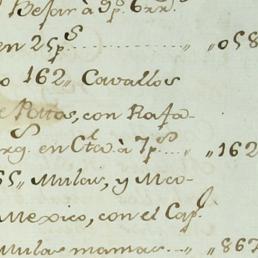 Bejar à 9p.s 6rr.s
en 25p.s ,, 058
o 162,, Cavallos
e Ratas, con Rafa-
rg. en Cta. à 7p.s ,, 162
55,, Mulas, y Mco-
Mexico, con el Cap.
Mulas mansas ,, 867